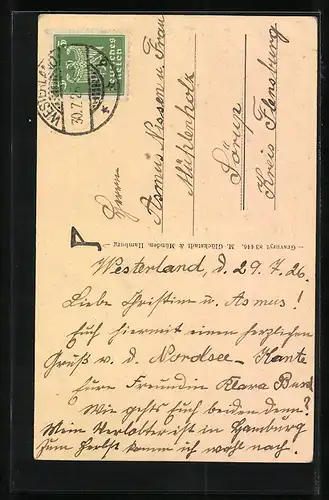 WESTERLAND
30.7.26
Deutsches Reich
5
Herrn
Asmus Nissen u. Frau
Mühlenholz
Sörup
Kreis Flensburg
Gravuryt 83446. M. Glückstadt & Münden, Hamburg
Westerland, d. 29.7.26.
Liebe Christine u. Asmus!
Euch hiermit einen herzlichen
Gruß v. d. Nordsee-Kante
Eure Freundin Klara
Wie gehts Euch beiden denn?
Mein Verlobter ist in Hamburg
zum Herbst komm ich wohl nach.